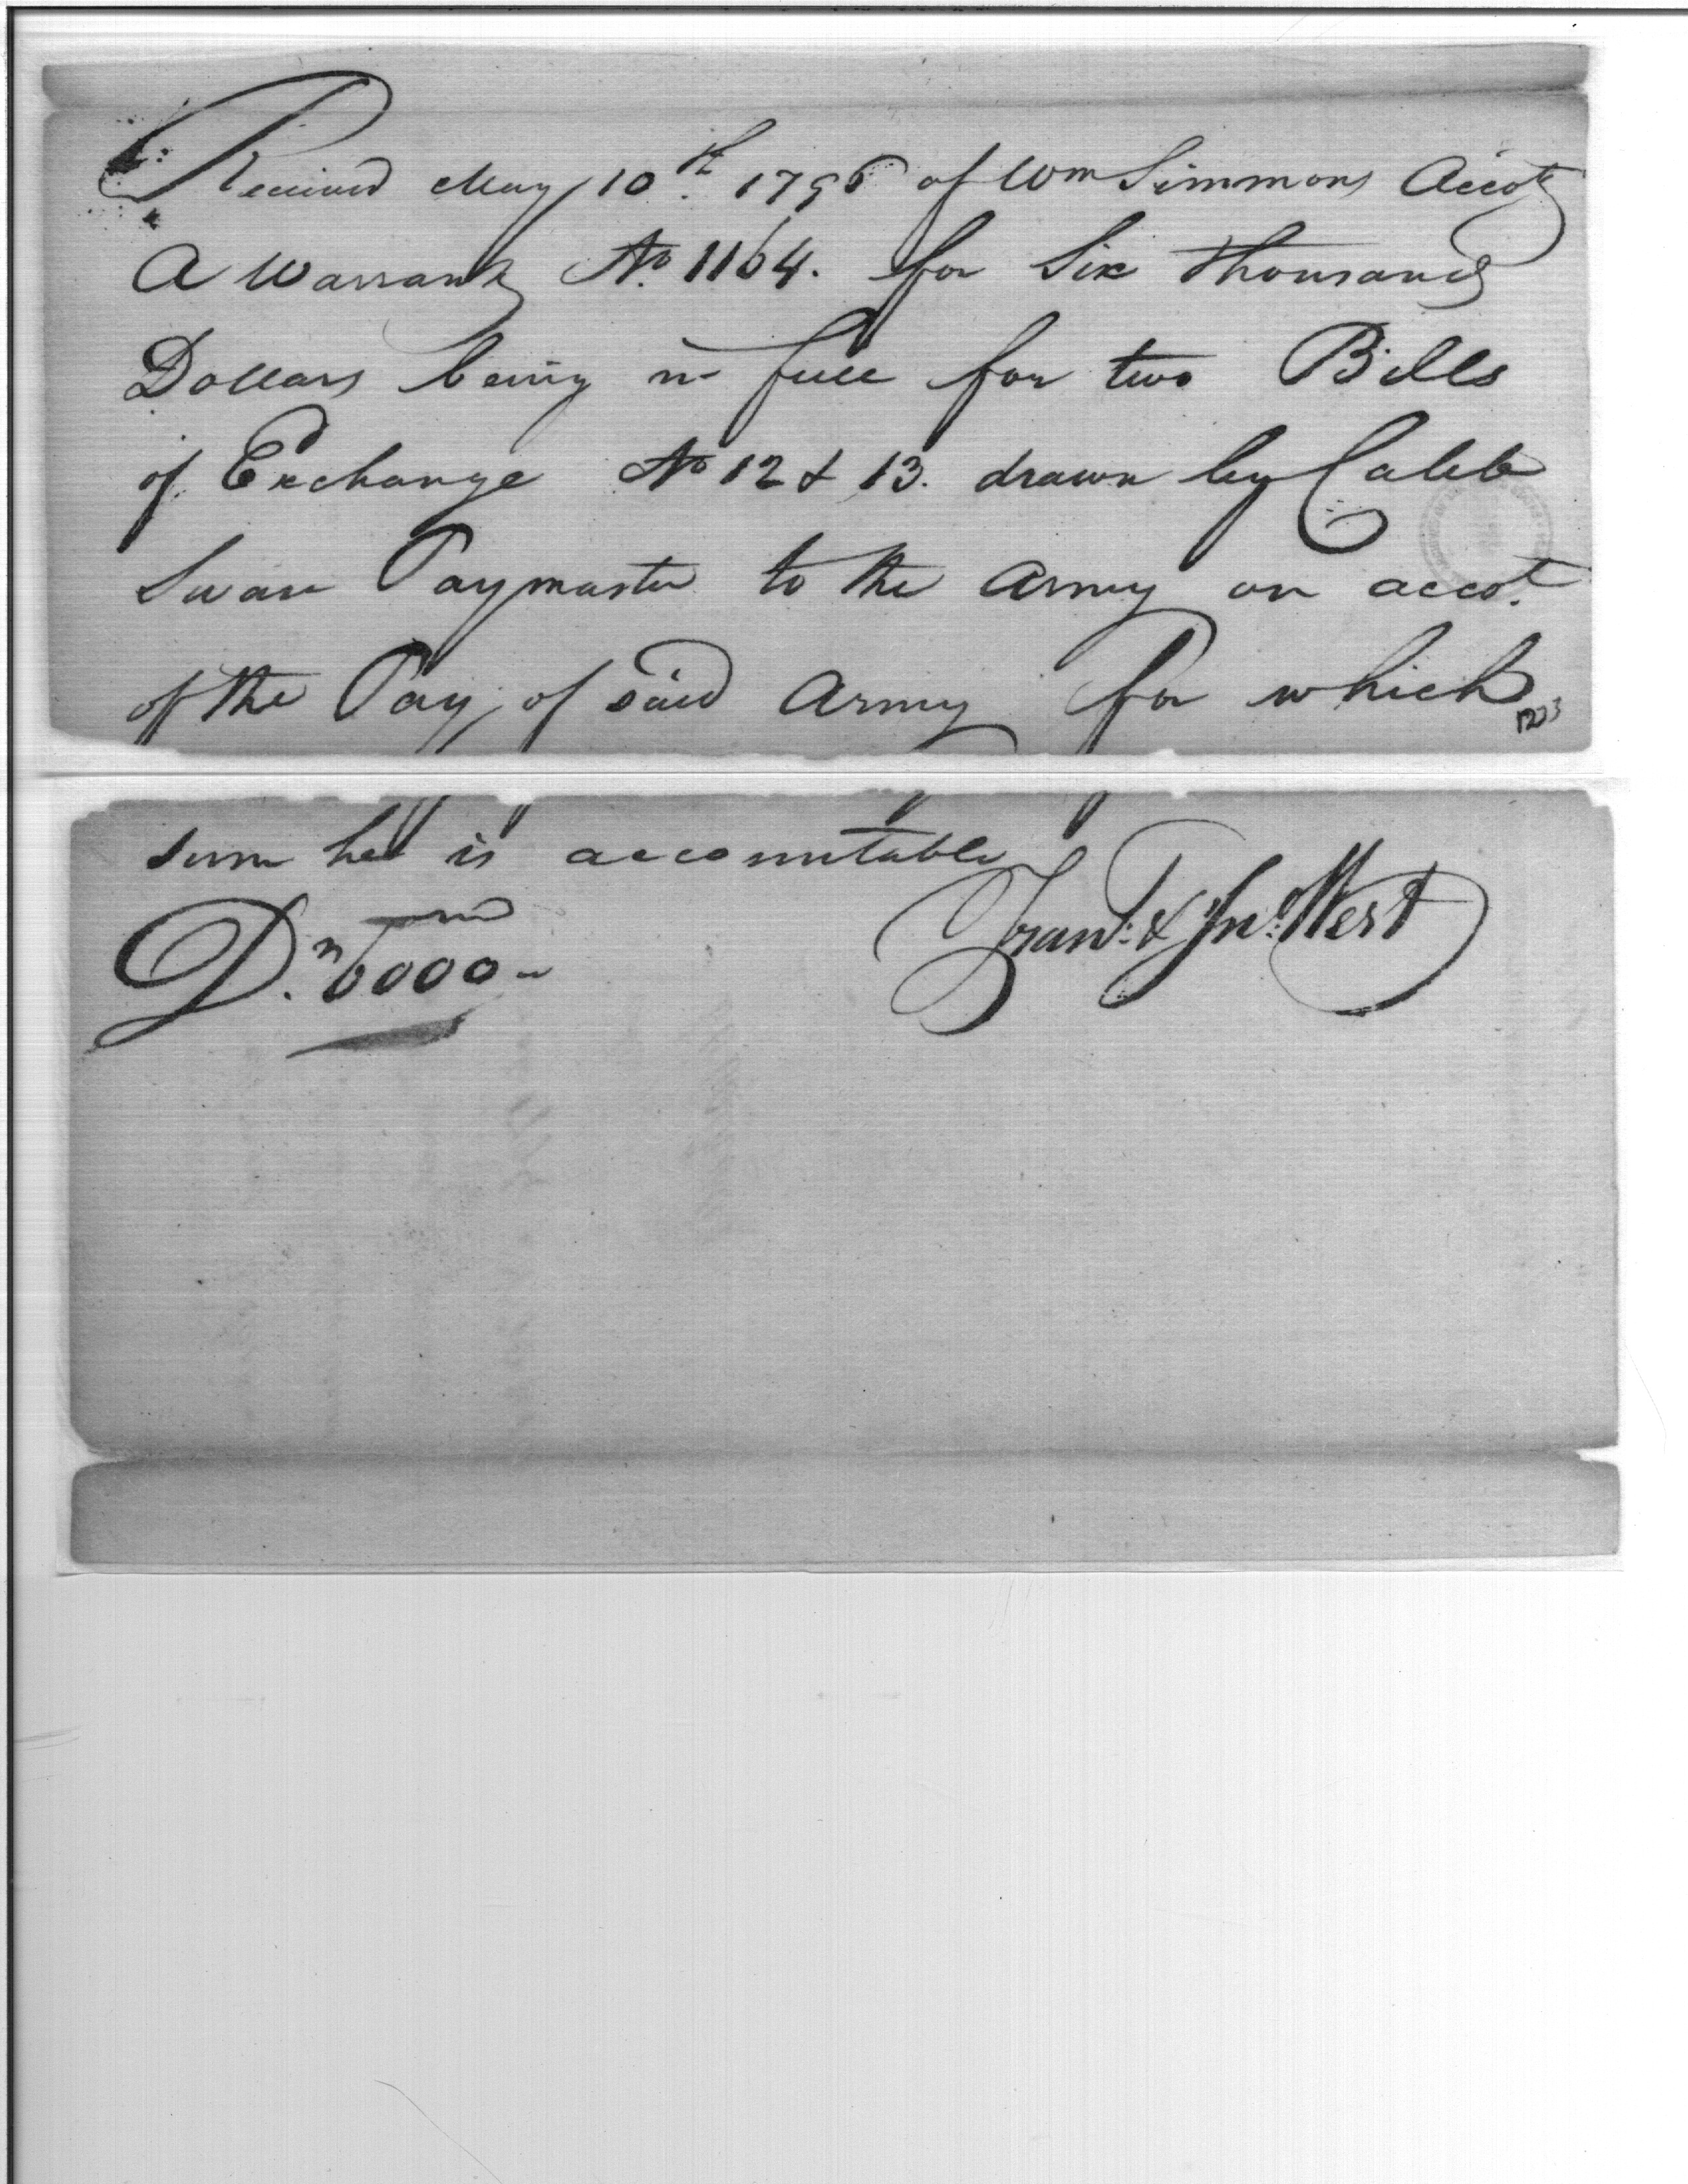 Received May 10th. 1796 of Wm Simmons Accot
A Warrant No. 1164. for Six Thousand
Dollars being in full for two Bills
of Exchange No 12 & 13. drawn by Caleb
Swan Paymaster to the Army on accot.
of the Pay, of said Army for which
1223
sum he is accountable
D. 6000
Frans. & Jno. West